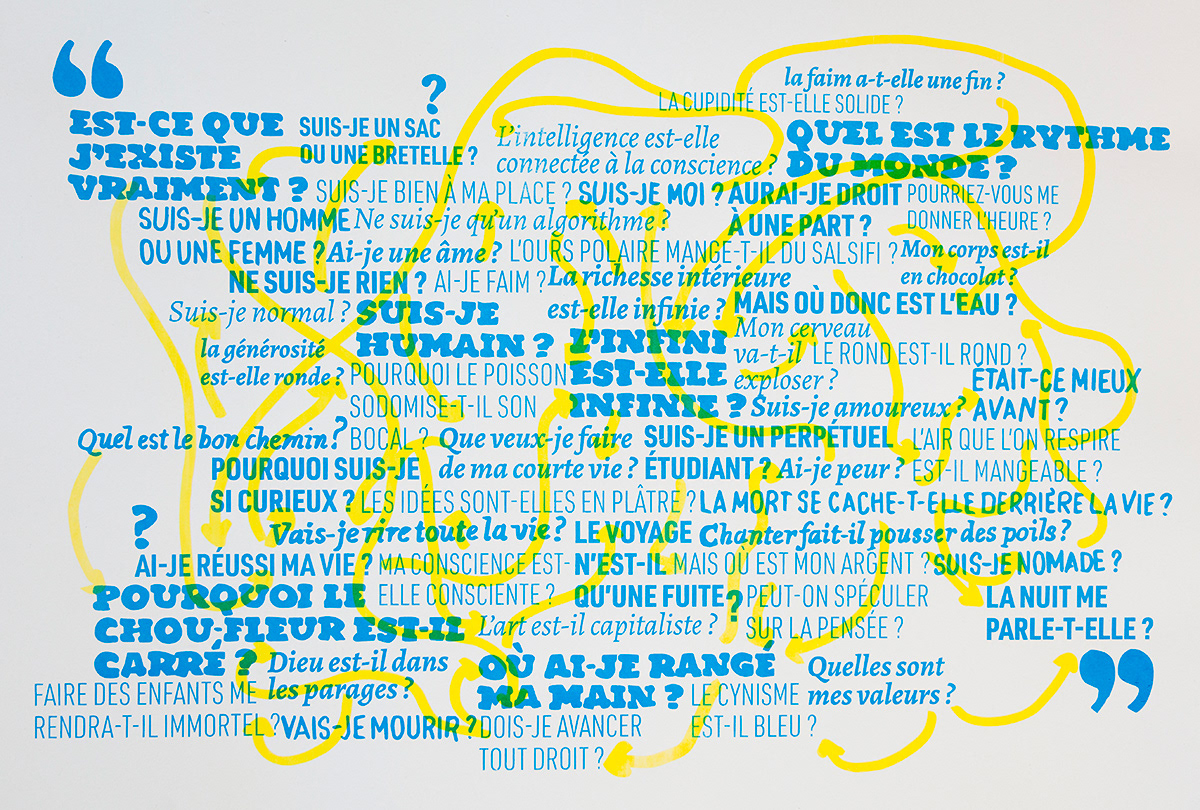 “
la faim a-t-elle une fin ?
LA CUPIDITÉ EST-ELLE SOLIDE ?
EST-CE QUE
J’EXISTE
VRAIMENT ?
SUIS-JE UN SAC
OU UNE BRETELLE ?
L’intelligence est-elle
connectée à la conscience ?
QUEL EST LE RYTHME
DU MONDE ?
SUIS-JE BIEN À MA PLACE ?
SUIS-JE MOI ?
AURAI-JE DROIT
À UNE PART ?
POURRIEZ-VOUS ME
DONNER L’HEURE ?
SUIS-JE UN HOMME
OU UNE FEMME ?
Ne suis-je qu’un algorithme ?
Ai-je une âme ?
L’OURS POLAIRE MANGE-T-IL DU SALSIFI ?
Mon corps est-il
en chocolat ?
NE SUIS-JE RIEN ?
AI-JE FAIM ?
La richesse intérieure
est-elle infinie ?
MAIS OÙ DONC EST L’EAU ?
Suis-je normal ?
SUIS-JE
HUMAIN ?
L’INFINI
EST-ELLE
INFINIE ?
Mon cerveau
va-t-il
exploser ?
LE ROND EST-IL ROND ?
la générosité
est-elle ronde ?
POURQUOI LE POISSON
SODOMISE-T-IL SON
BOCAL ?
ETAIT-CE MIEUX
AVANT ?
Suis-je amoureux ?
Quel est le bon chemin ?
Que veux-je faire
de ma courte vie ?
SUIS-JE UN PERPÉTUEL
ÉTUDIANT ?
L’AIR QUE L’ON RESPIRE
EST-IL MANGEABLE ?
POURQUOI SUIS-JE
SI CURIEUX ?
Ai-je peur ?
LES IDÉES SONT-ELLES EN PLÂTRE ?
LA MORT SE CACHE-T-ELLE DERRIÈRE LA VIE ?
?
?
Vais-je rire toute la vie ?
LE VOYAGE
N’EST-IL
QU’UNE FUITE ?
Chanter fait-il pousser des poils ?
AI-JE RÉUSSI MA VIE ?
MA CONSCIENCE EST-
ELLE CONSCIENTE ?
MAIS OÙ EST MON ARGENT ?
SUIS-JE NOMADE ?
POURQUOI LE
CHOU-FLEUR EST-IL
CARRÉ ?
PEUT-ON SPÉCULER
SUR LA PENSÉE ?
LA NUIT ME
PARLE-T-ELLE ?
L’art est-il capitaliste ?
Dieu est-il dans
les parages ?
OÙ AI-JE RANGÉ
MA MAIN ?
Quelles sont
mes valeurs ?
FAIRE DES ENFANTS ME
RENDRA-T-IL IMMORTEL ?
VAIS-JE MOURIR ?
DOIS-JE AVANCER
TOUT DROIT ?
LE CYNISME
EST-IL BLEU ?
”